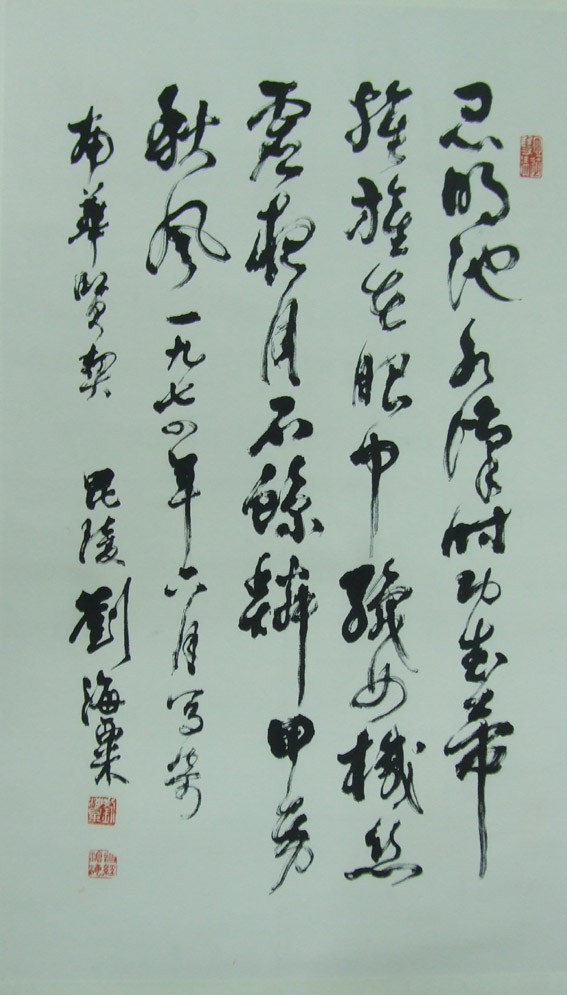 昆明池水漢時功武帝
旌旗在眼中織女機絲
虛夜月石鯨鱗甲動
秋風 一九七四年六月写寄
南華賢契 毘陵劉海粟